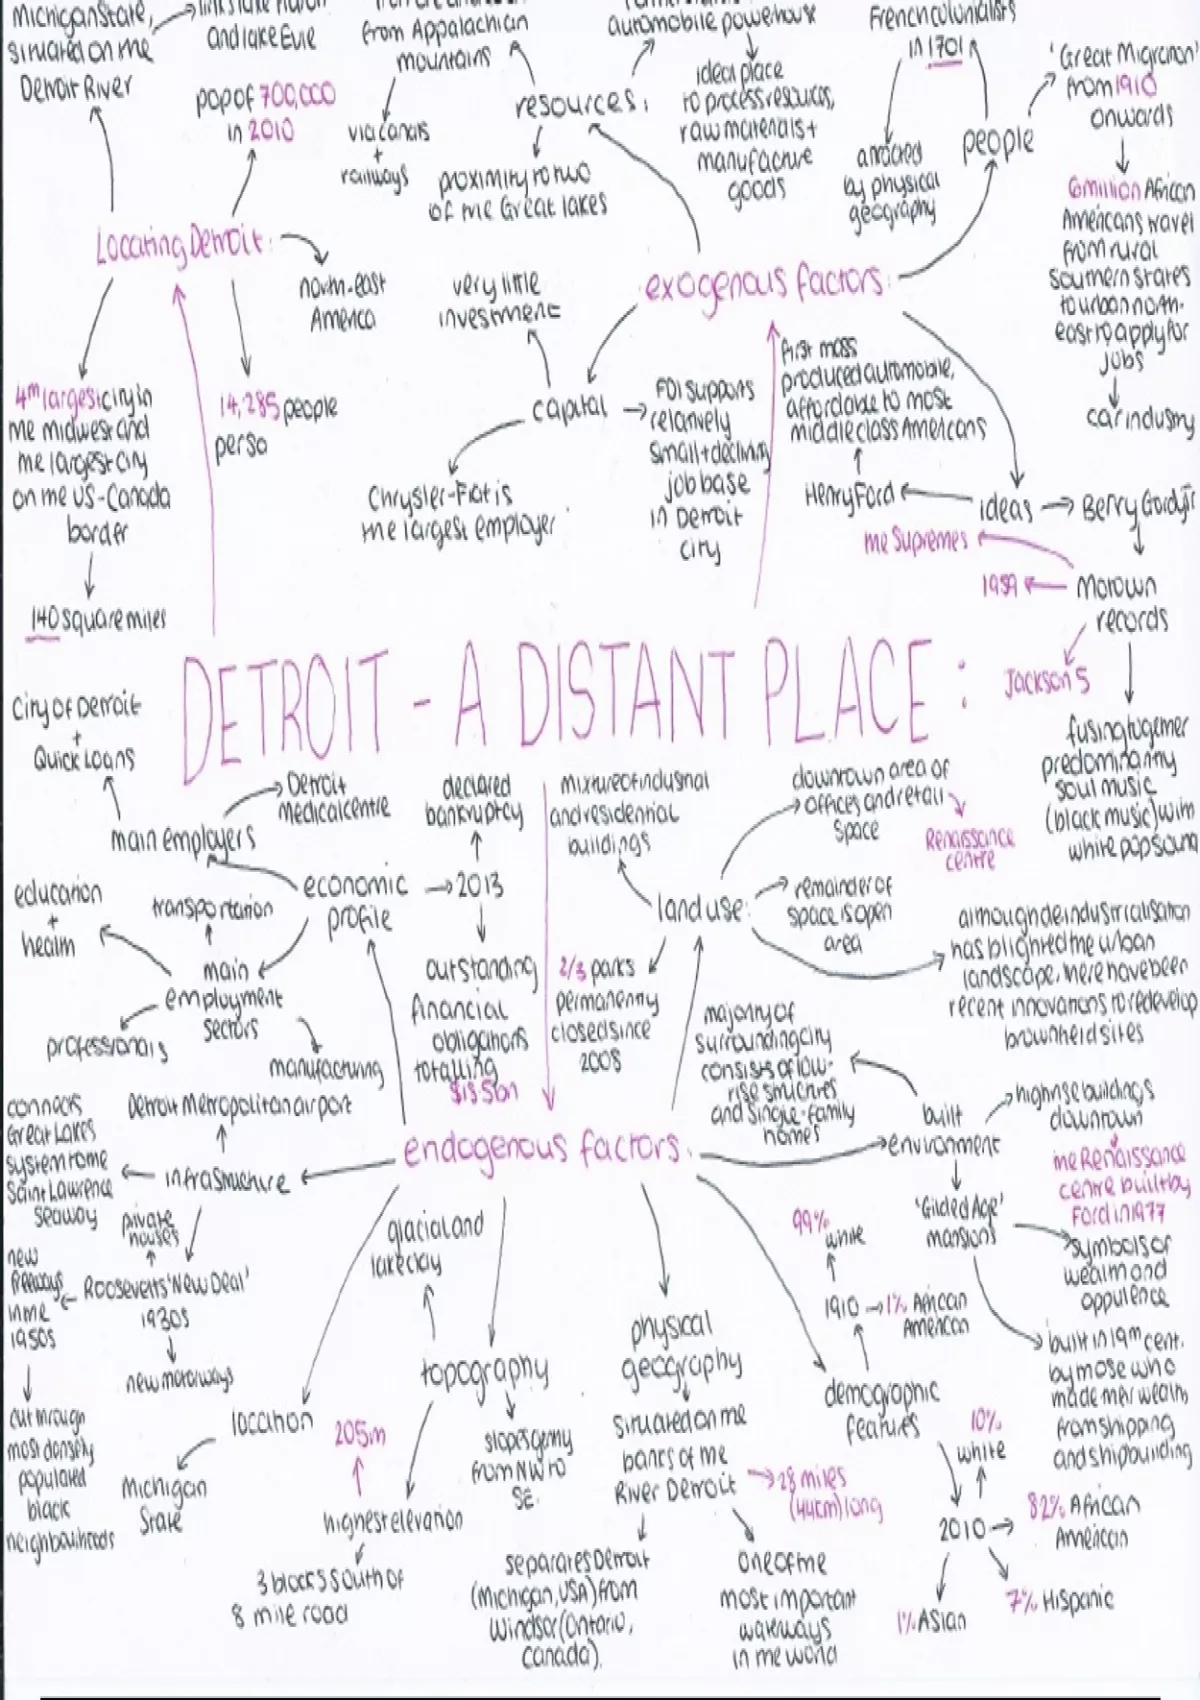 Michigan State,
situated on the
Detroit River
links Lake Huron
and Lake Evie
pop of 700,000
in 2010
Locating Detroit:
north-east
America
4th largest city in
the midwest and
the largest city
on the US-Canada
border
140 square miles
14,285 people
per sq
from Appalachian
mountains
via canals
+
railways
resources:
proximity to two
of the Great lakes
automobile powerhouse
ideal place
to process resources,
raw materials +
manufacture
goods
French colonialists
in 1701
attracted
by physical
geography
people
'Great Migration'
from 1910
onwards
6 million African
Americans travel
from rural
southern states
to urban north-
east to apply for
jobs
car industry
exogenous factors:
very little
investment
capital
FDI supports
relatively
small + declining
job base
in Detroit
city
Chrysler-Fiat is
the largest employer
first mass
produced automobile,
affordable to most
middle class Americans
Henry Ford
ideas
Berry Gordy Jr
the Supremes
1959
Motown
records
Jackson 5
fusing together
predominantly
soul music
(black music) with
white pop sound
DETROIT - A DISTANT PLACE:
City of Detroit
+
Quick Loans
main employers
Detroit
medical centre
declared
bankruptcy
economic
profile
2013
outstanding
financial
obligations
totalling
$18.5bn
education
+
health
transportation
main
employment
sectors
professionals
manufacturing
mixture of industrial
and residential
buildings
downtown area of
offices and retail
space
Renaissance
centre
land use:
remainder of
space is open
area
2/3 parks
permanently
closed since
2008
although deindustrialisation
has blighted the urban
landscape, there have been
recent innovations to redevelop
brownfield sites
majority of
surrounding city
consists of low-
rise structures
and single-family
homes
built
environment
highrise buildings
downtown
the Renaissance
centre built by
Ford in 1977
'Gilded Age'
mansions
symbols of
wealth and
oppulence
built in 19th cent.
by those who
made their wealth
from shipping
and shipbuilding
endogenous factors:
Detroit Metropolitan airport
infrastructure
connects
Great Lakes
system to the
Saint Lawrence
Seaway
private
houses
Roosevelt's 'New Deal'
1930s
new motorways
new
freeways
in the
1950s
cut through
most densely
populated
black
neighbourhoods
location
Michigan
State
glacial and
lake clay
topography
slopes gently
from NW to
SE.
205m
highest elevation
3 blocks south of
8 mile road
physical
geography
situated on the
banks of the
River Detroit
28 miles
(44km) long
separates Detroit
(Michigan, USA) from
Windsor (Ontario,
Canada).
one of the
most important
waterways
in the world
demographic
features
99%
white
1910
1% African
American
10%
white
2010
82% African
American
7% Hispanic
1% Asian